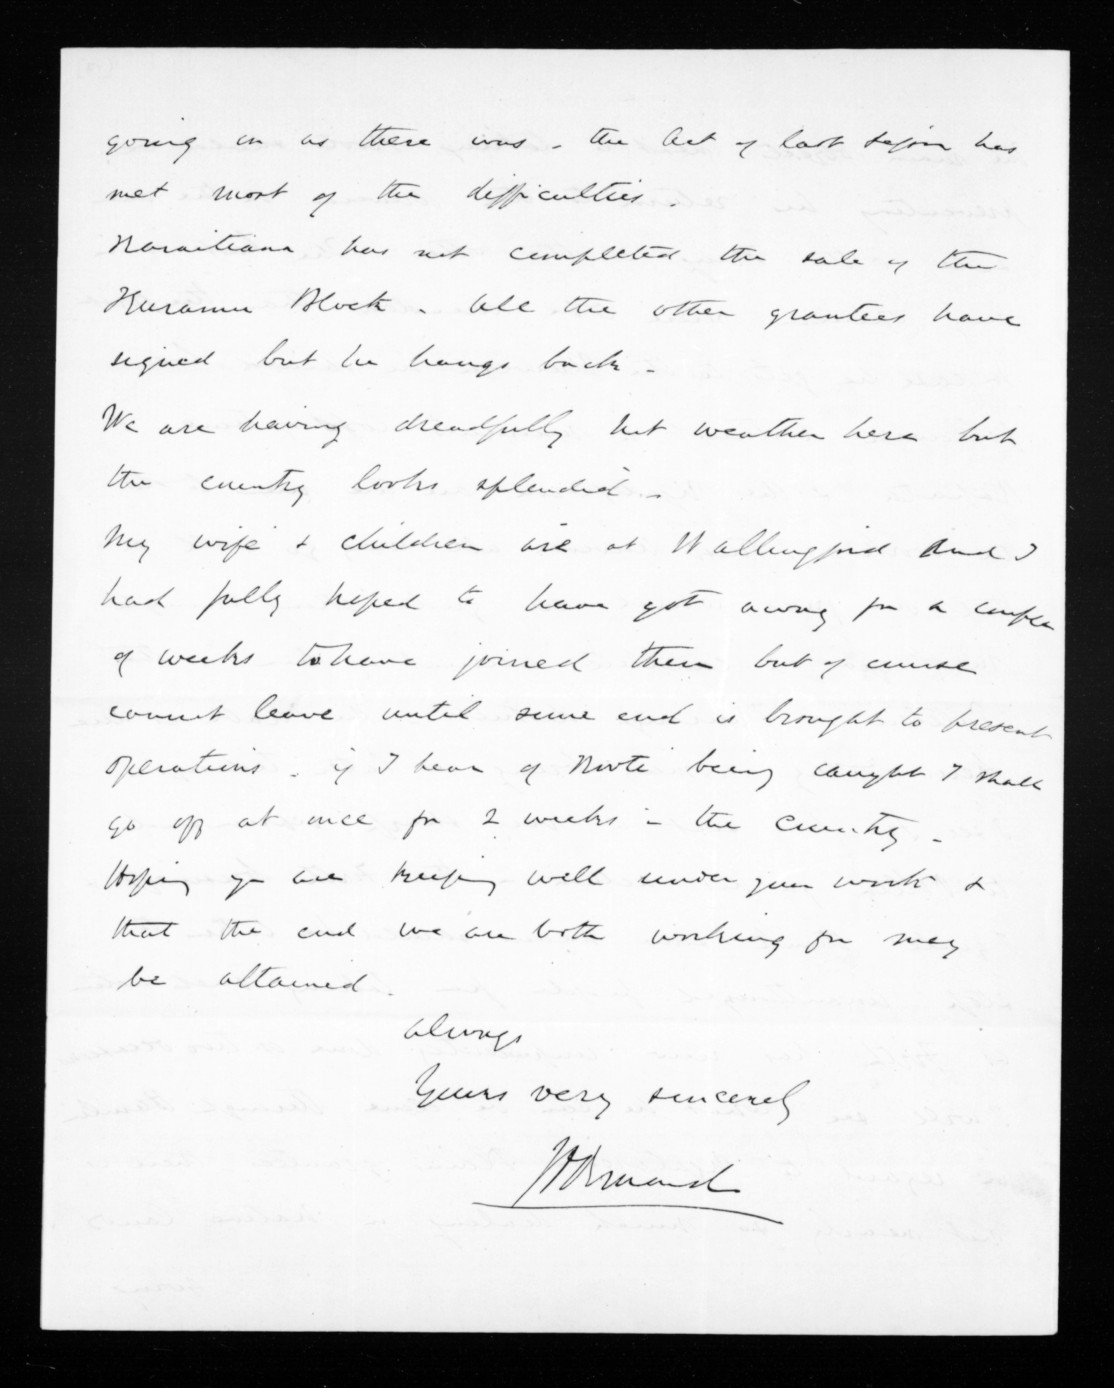 going on as there was - the Act of last session has
met most of the difficulties.
Karaitiana has not completed the sale of the
Block. All the other grantees have
signed but he hangs back -
We are having dreadfully hot weather here but
the country looks splendid -
My wife & children are at Wallingford and I
had fully hoped to have got away for a couple
of weeks to have joined them but of course
cannot leave until some end is brought to present
operations. if I hear of Kooti being caught I shall
go off at once for 2 weeks in the country -
Hoping you are keeping well under your work &
that the end we are both working for may
be attained.
always
Yours very sincerely
JD Ormond